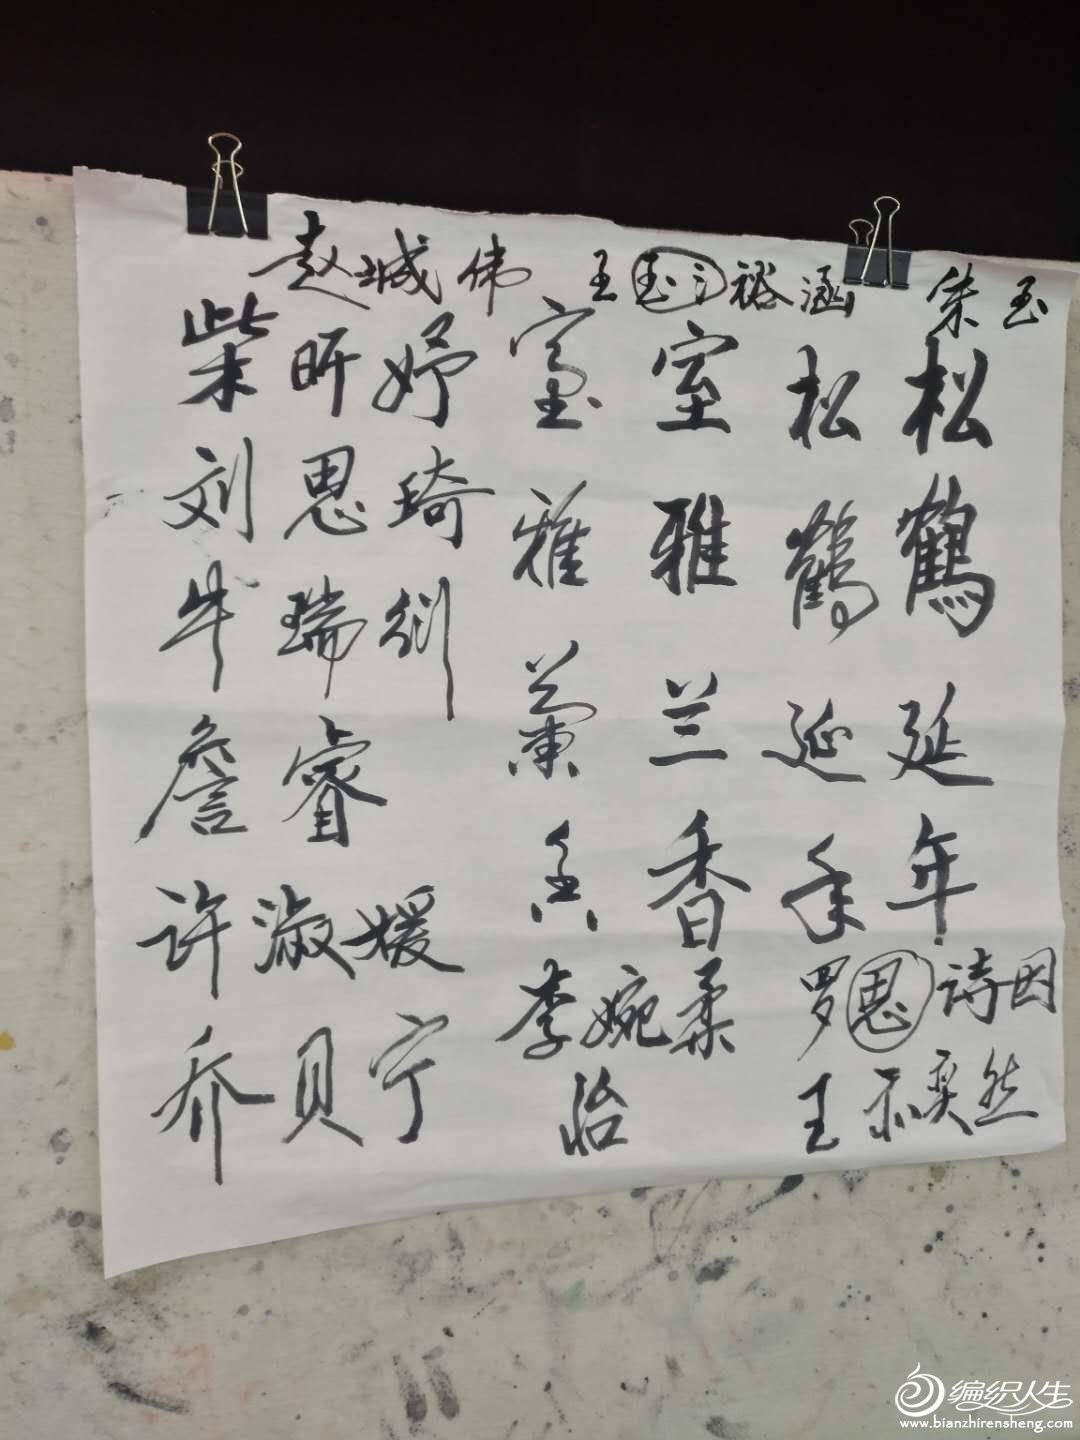 赵城伟 王玉氵裕涵 朱玉
松鹤延年
松鹤延年
室雅兰香
室雅蘭香
柴昕妤
刘思琦
牛瑞衍
詹睿
许淑媛
乔贝宁
李婉柔
怡
罗思诗因
王奕然
编织人生
www.bianzhirensheng.com